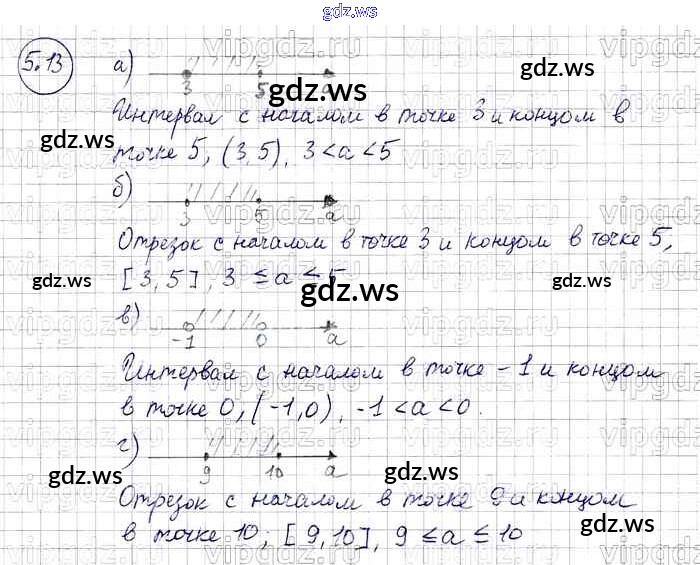 gdz.ws
5.13
а)
3 5 a
Интервал с началом в точке 3 и концом в
точке 5, (3, 5), 3 < a < 5
б)
3 5 a
Отрезок с началом в точке 3 и концом в точке 5,
[3, 5], 3 ≤ a ≤ 5
в)
-1 0 a
Интервал с началом в точке -1 и концом
в точке 0, (-1, 0), -1 < a < 0.
г)
9 10 a
Отрезок с началом в точке 9 и концом
в точке 10; [9, 10], 9 ≤ a ≤ 10